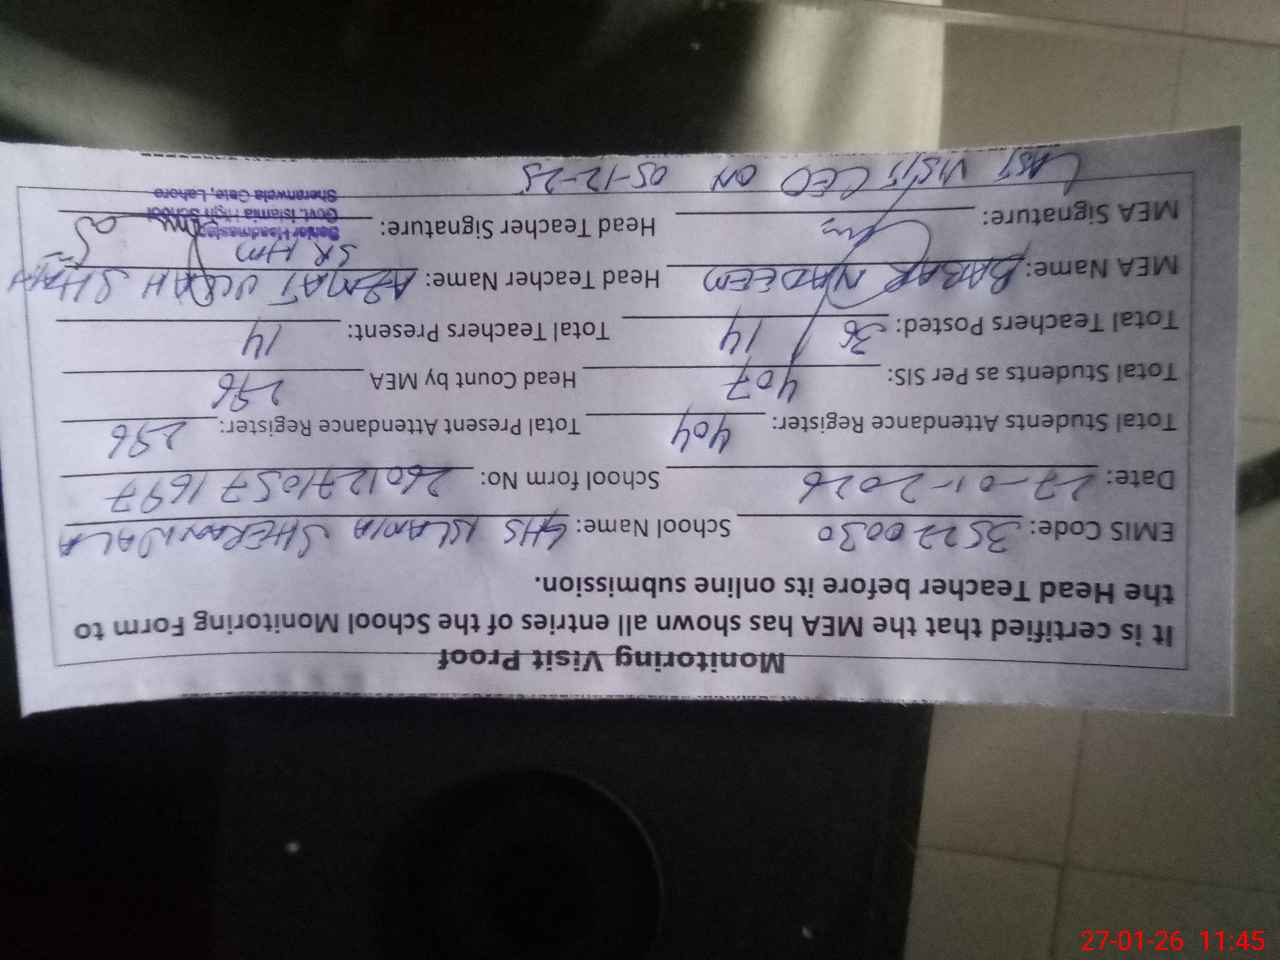 Monitoring Visit Proof
It is certified that the MEA has shown all entries of the School Monitoring Form to
the Head Teacher before its online submission.
EMIS Code: 35220030 School Name: GHS ISLAMIA SHERANWALA
Date: 27-01-2026 School form No: 260127105716 97
Total Students Attendance Register: 404 Total Present Attendance Register: 296
Total Students as Per SIS: 407 Head Count by MEA 296
Total Teachers Posted: 36 14 Total Teachers Present: 14
MEA Name: BABAR NADEEM Head Teacher Name: AZMAT ULLAH SHAH
SR HM
MEA Signature: Head Teacher Signature:
Senior Headmaster
Govt. Islamia High School
Sheranwala Gate, Lahore
LAST VISIT CEO ON 05-12-25
27-01-26 11:45